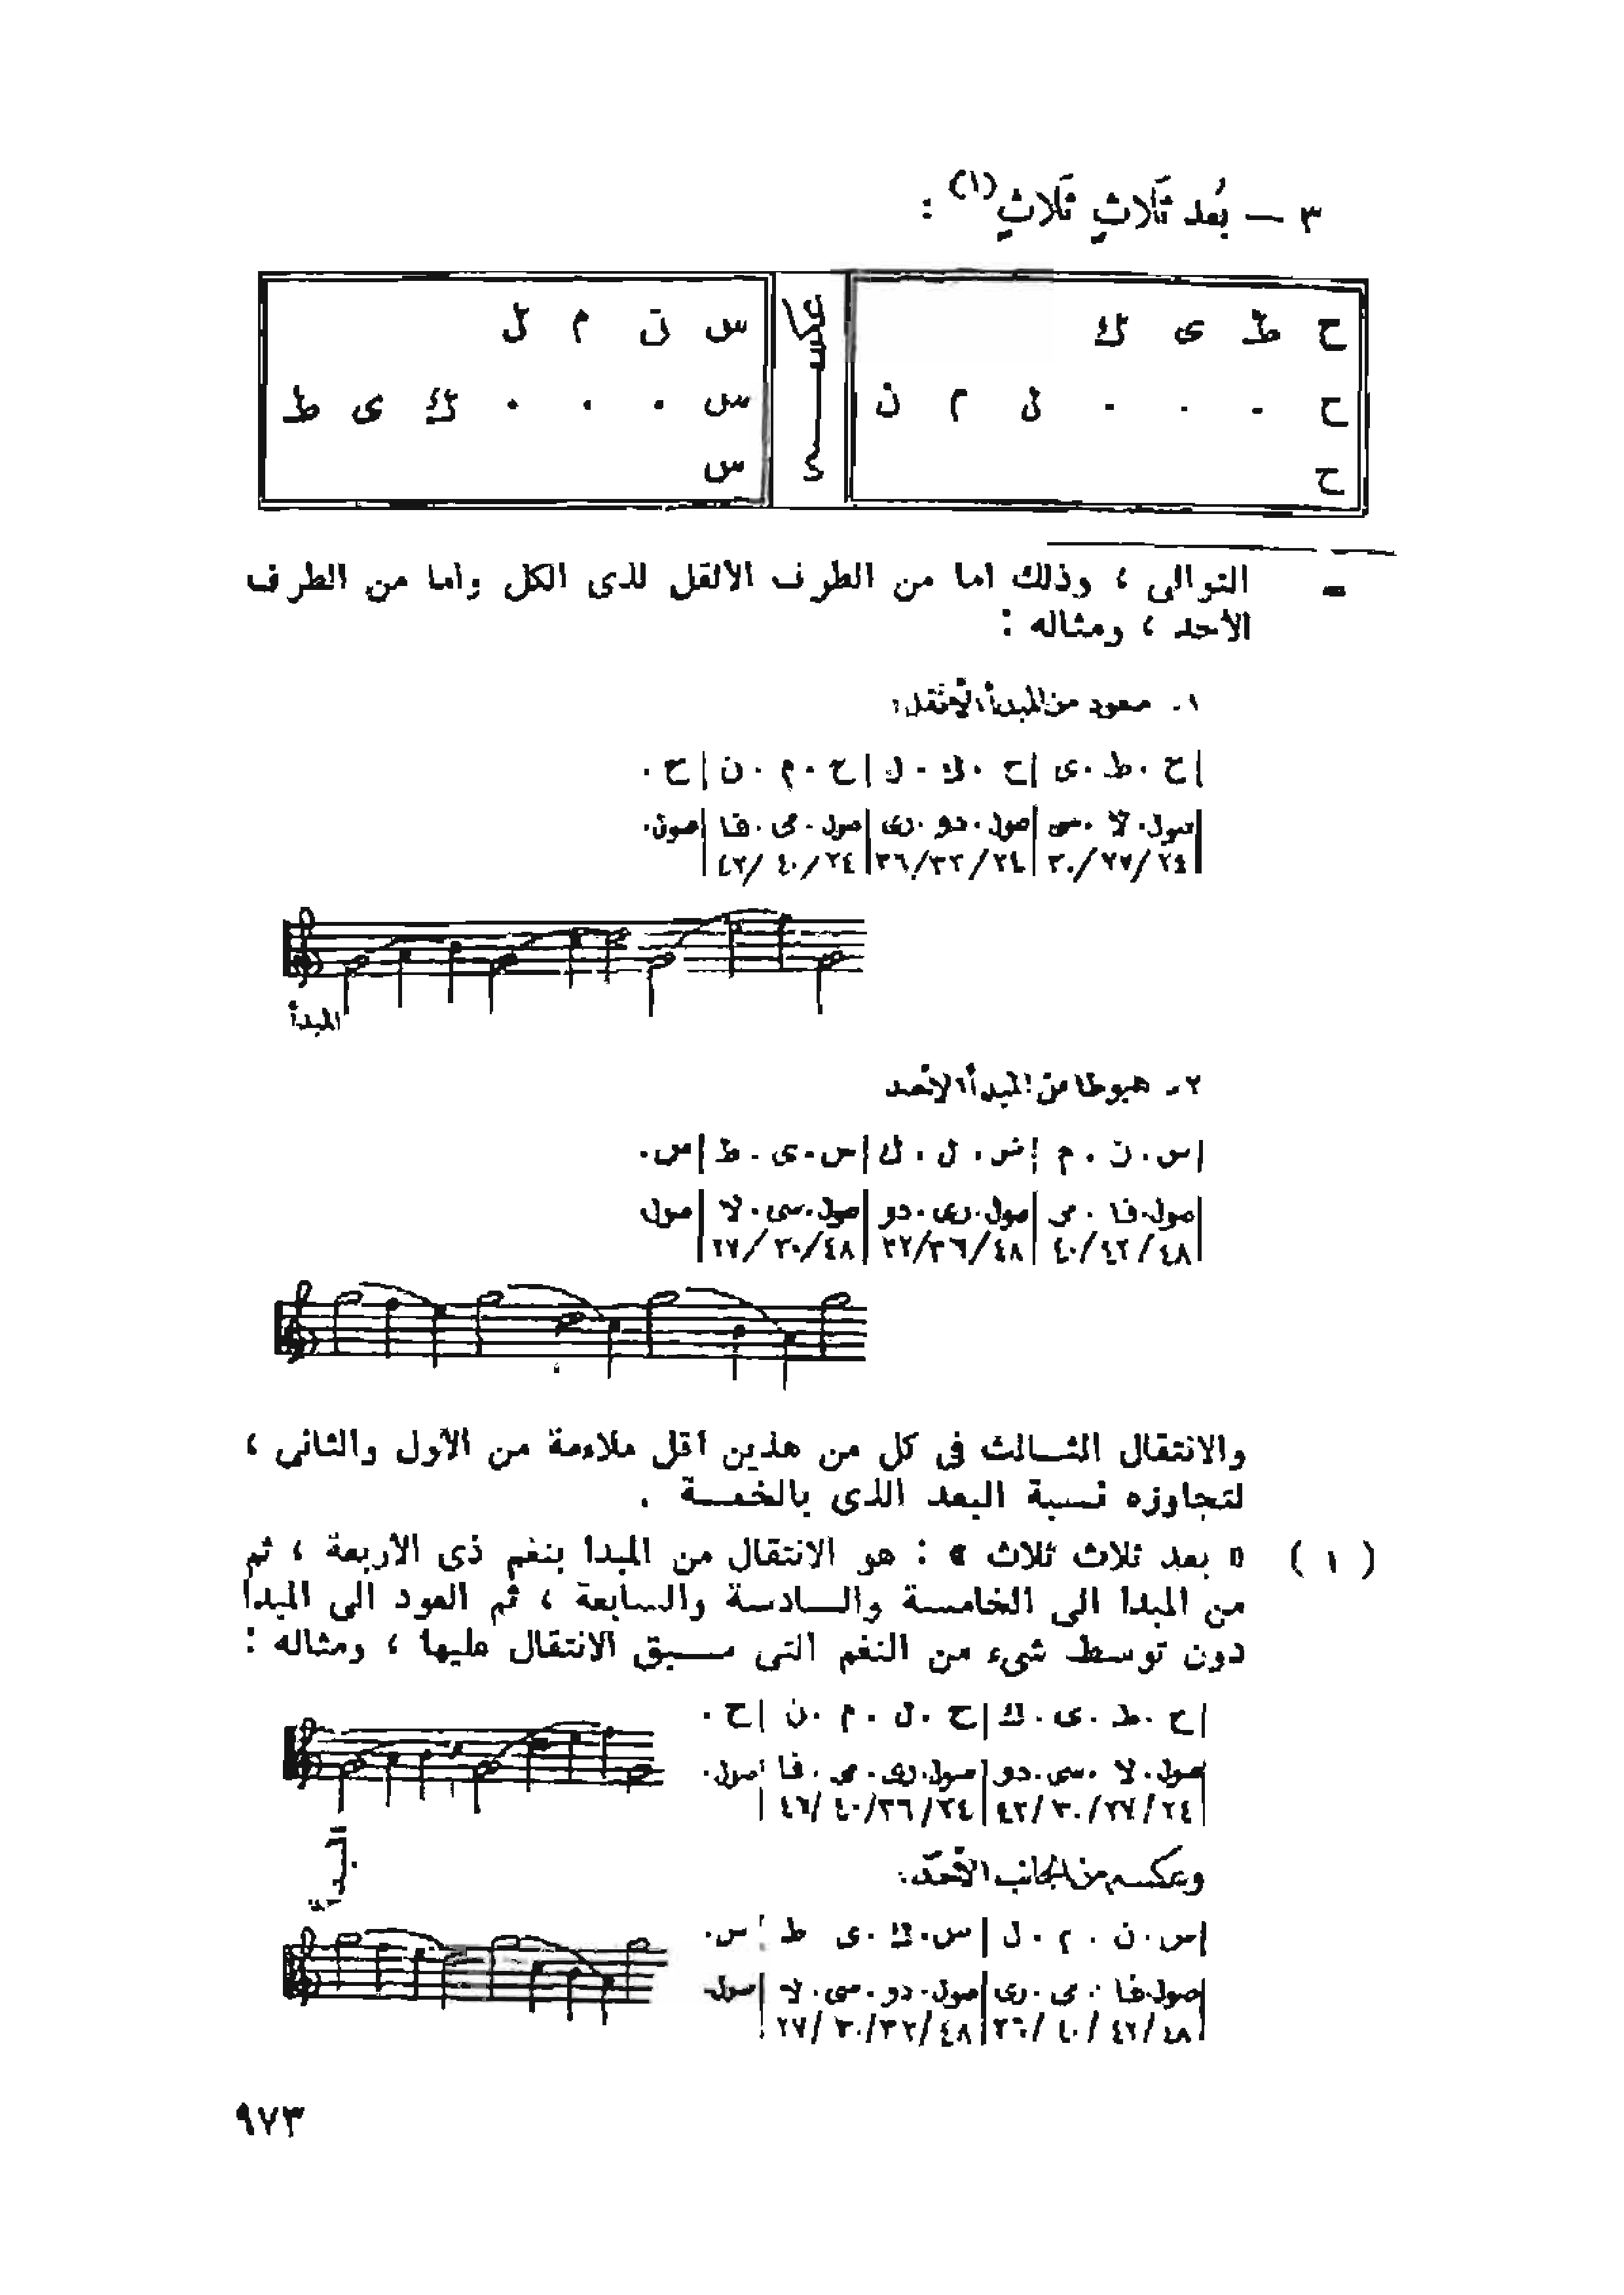 ٣ — بُعد ثَلاثٍ ثَلاثٍ (١) :
ح ط ى ك
ح . . . ل م ن
ح
عكس
س ن م ل
س . . . ك ى ط
س
= التوالى ، وذلك اما من الطرف الأثقل للذى الكل واما من الطرف
الأحد ، ومثاله :
١ـ صعود من المبدأ الأثقل :
|ح . ط . ى |ح . ك . ل |ح . م . ن |ح .
|صول . لا . سى |صول . دو . رى |صول . مى . فا |صول .
٢٤ / ٢٧ / ٣٠ | ٢٤ / ٣٢ / ٣٦ | ٢٤ / ٤٠ / ٤٢ |
المبدأ
٢ـ هبوطا من المبدأ الأحد
|س . ن . م |س . ل . ك |س . ى . ط |س .
|صول . فا . مى |صول . رى . دو |صول . سى . لا |صول
٤٨ / ٤٢ / ٤٠ | ٤٨ / ٣٦ / ٣٢ | ٤٨ / ٣٠ / ٢٧ |
والانتقال الثـالث فى كل من هذين أقل ملاءمة من الأول والثاني ،
لتجاوزه نسبة البعد الذى بالخمسة .
( ١ ) « بعد ثلاث ثلاث » : هو الانتقال من المبدا بنغم ذى الأربعة ، ثم
من المبدا الى الخامسة والسادسة والسابعة ، ثم العود الى المبدا
دون توسط شىء من النغم التى سبق الانتقال عليها ، ومثاله :
|ح . ط . ى . ك |ح . ل . م . ن |ح .
|صول . لا . سى . دو |صول . رى . مى . فا |صول .
٢٤ / ٢٧ / ٣٠ / ٤٢ | ٢٤ / ٣٦ / ٤٠ / ٤٦ |
المبدأ
وعكسه من الجانب الأحد .
|س . ن . م . ل |س . ك . ى ط |س .
|صول . فا . مى . رى |صول . دو . سى . لا |صول .
٤٨ / ٤٢ / ٤٠ / ٣٦ | ٤٨ / ٣٢ / ٣٠ / ٢٧ |
٩٧٣